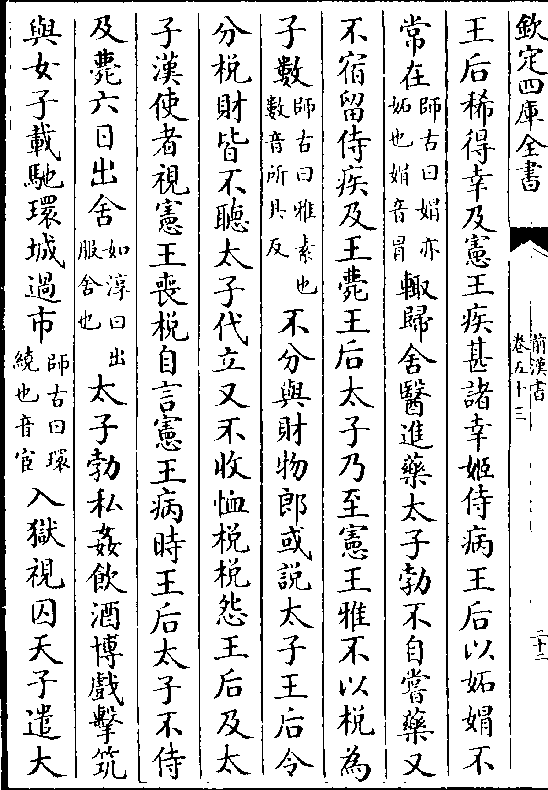 欽定四庫全書
前漢書
卷五十三
二十二
王后稀得幸及憲王疾甚諸幸姬侍病王后以妬媢不
常在師古曰媢亦妬也媢音冒輒歸舍醫進藥太子勃不自嘗藥又
不宿留侍疾及王薨王后太子乃至憲王雅不以梲為
子數師古曰雅素也數音所具反不分與財物郎或說太子王后令
分梲財皆不聽太子代立又不收恤梲梲怨王后及太
子漢使者視憲王喪梲自言憲王病時王后太子不侍
及薨六日出舍如淳曰出服舍也太子勃私姦飲酒博戲擊筑
與女子載馳環城過市師古曰環繞也音宦入獄視囚天子遣大